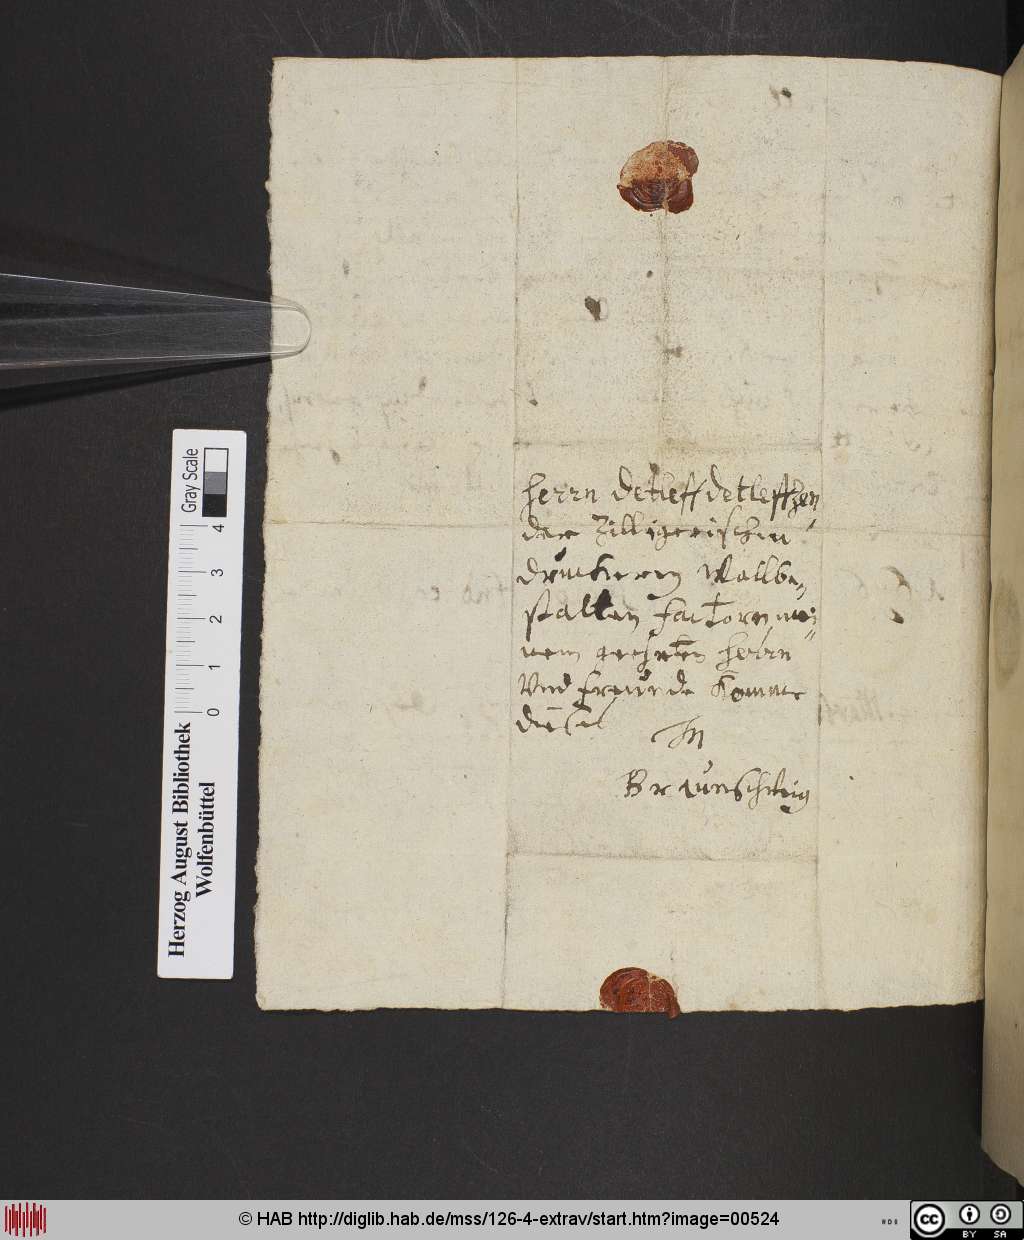 Herrn Detleff Detleffhen
der Zilligerischen
Druckerey Wollbe⸗
stalten Factorn mei⸗
nem geehrten Herrn
Vnd freunde Komme
dieses
In
Braunschweig
Gray Scale
0 1 2 3 4
Herzog August Bibliothek
Wolfenbüttel
© HAB http://diglib.hab.de/mss/126-4-extrav/start.htm?image=00524
cc BY SA